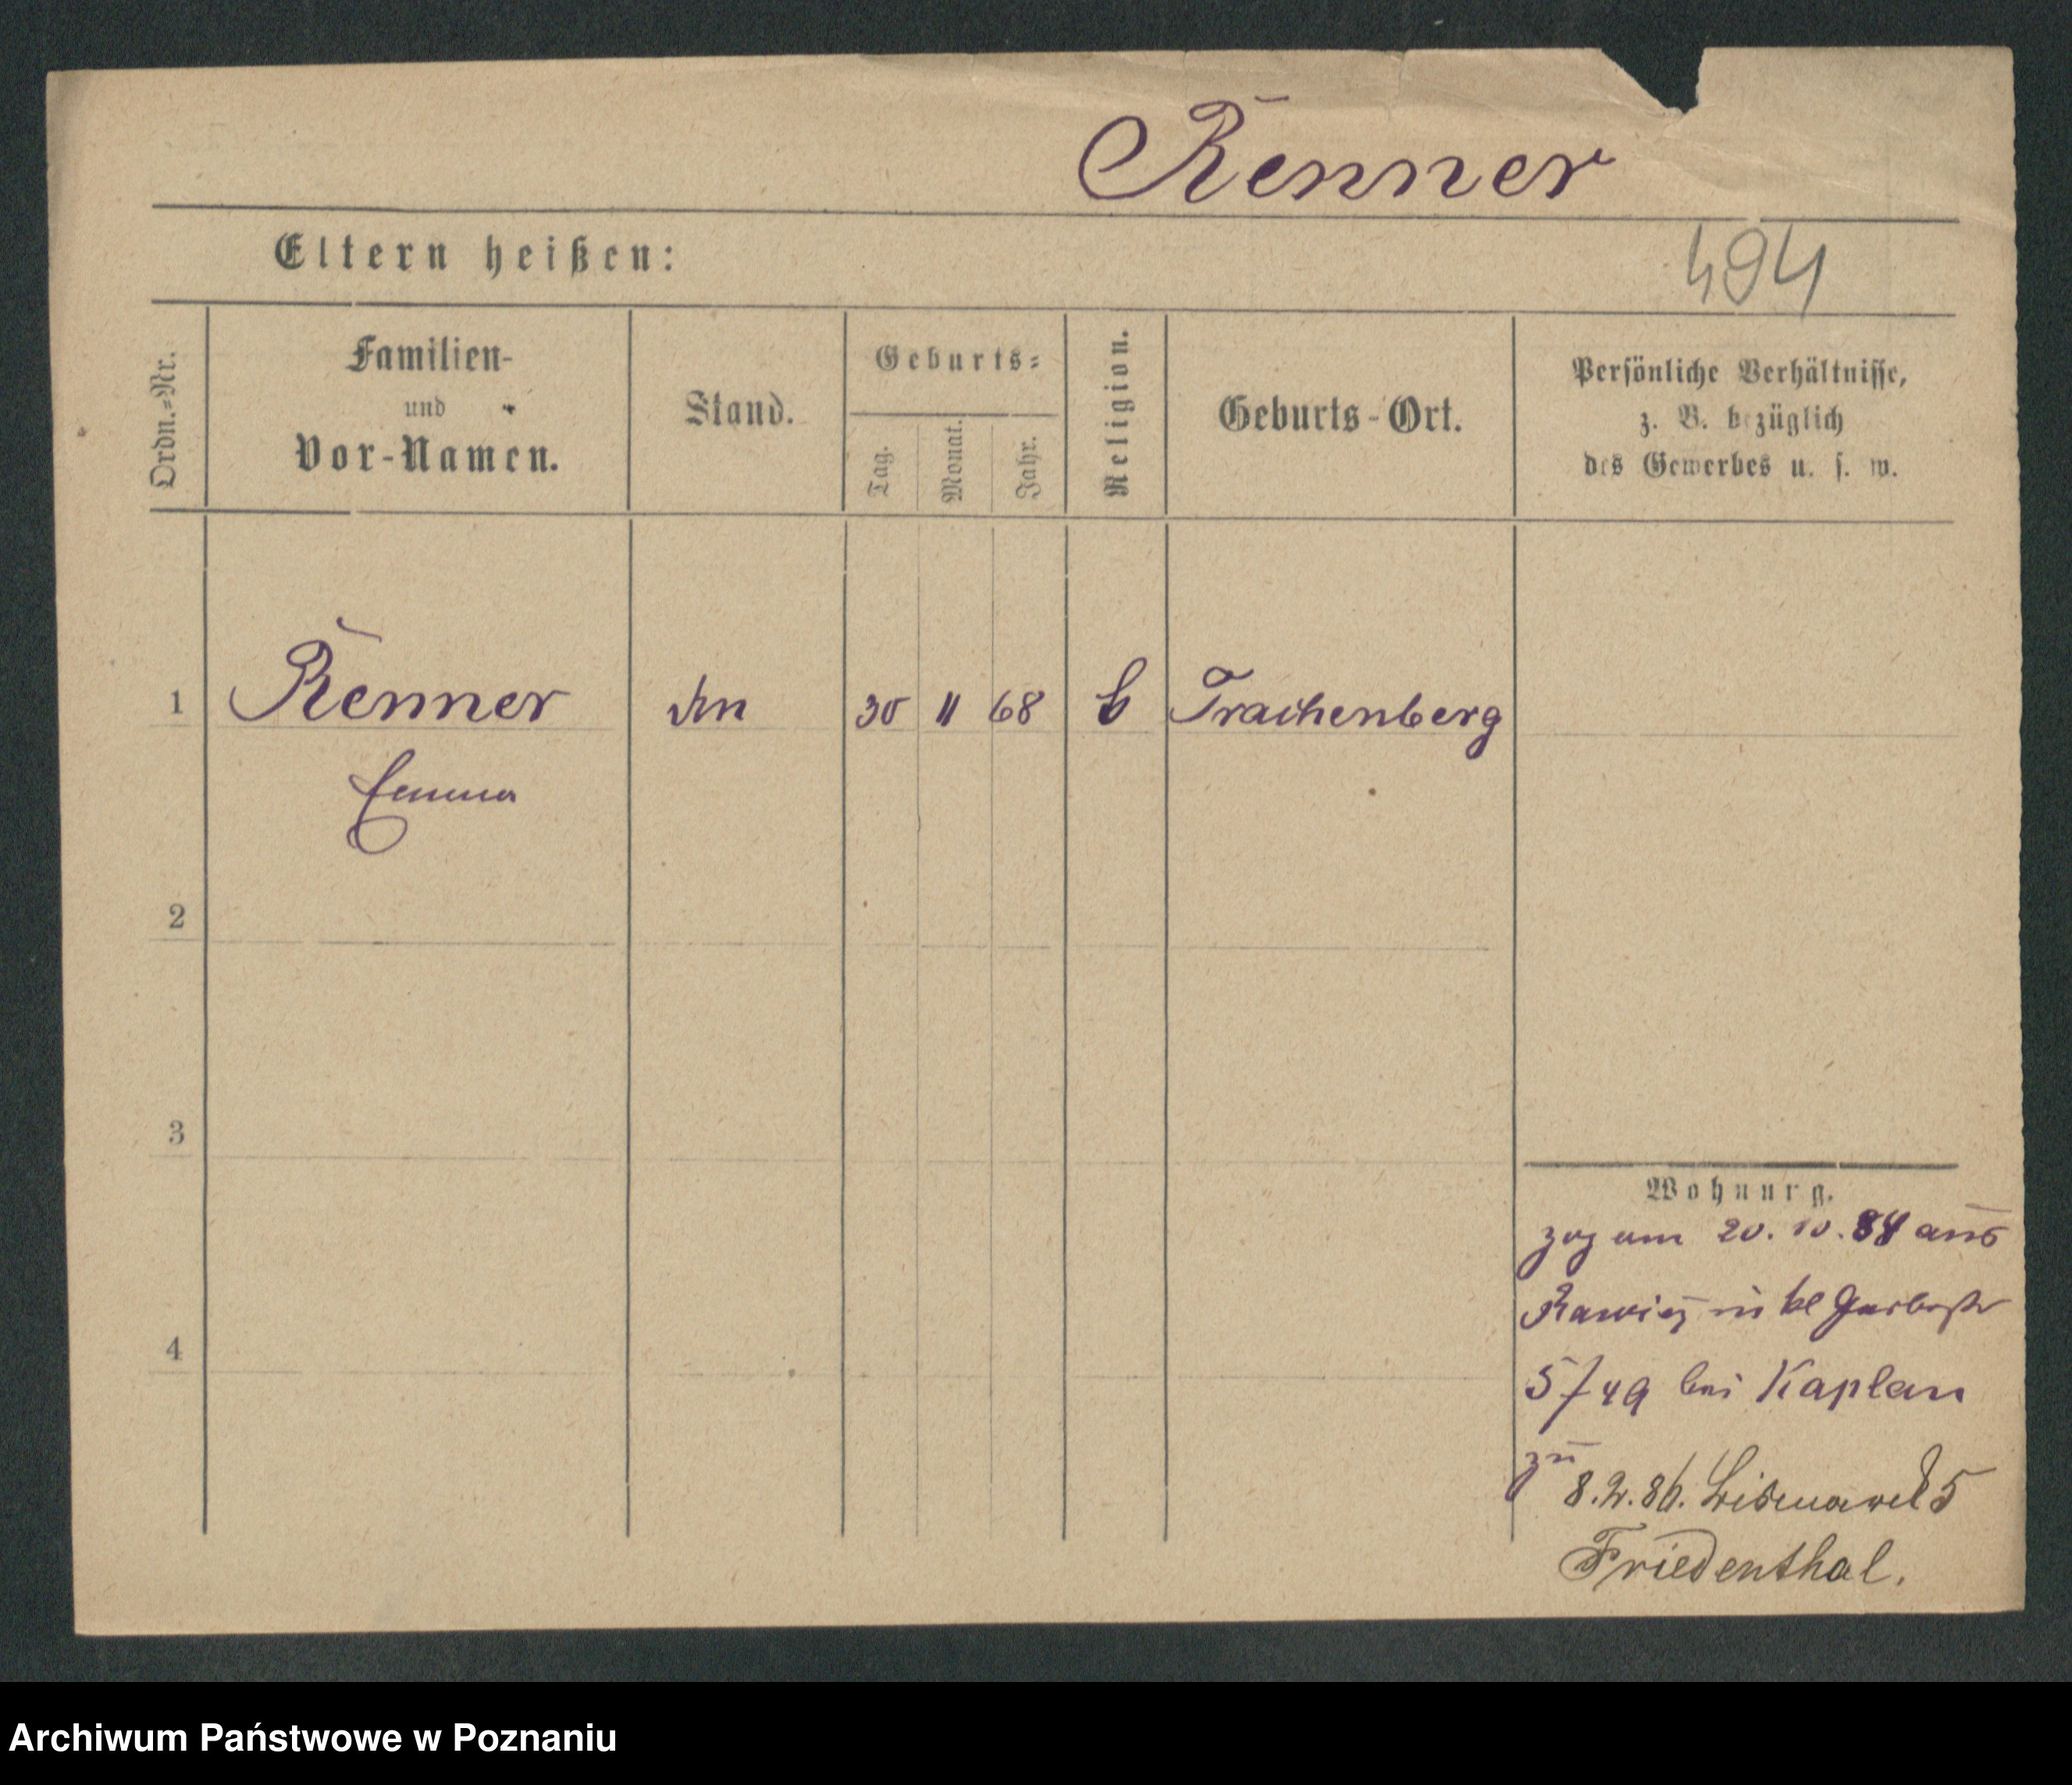 Renner
494
Eltern heißen:
Ordn.-Nr.
Familien-
und
Vor-Namen.
Stand.
Geburts-
Tag.
Monat.
Jahr.
Religion.
Geburts-Ort.
Persönliche Verhältnisse,
z. B. bezüglich
des Gewerbes u. s. w.
1
Renner
30
11
68
Trachenberg
Emma
2
3
4
Wohnung.
zog am 20. 10. 84 aus
Rawicz in kl Gerberstr
5/49 bei Kaplan
zu
8.2.86. Bismarck 5
Friedenthal.
Archiwum Państwowe w Poznaniu